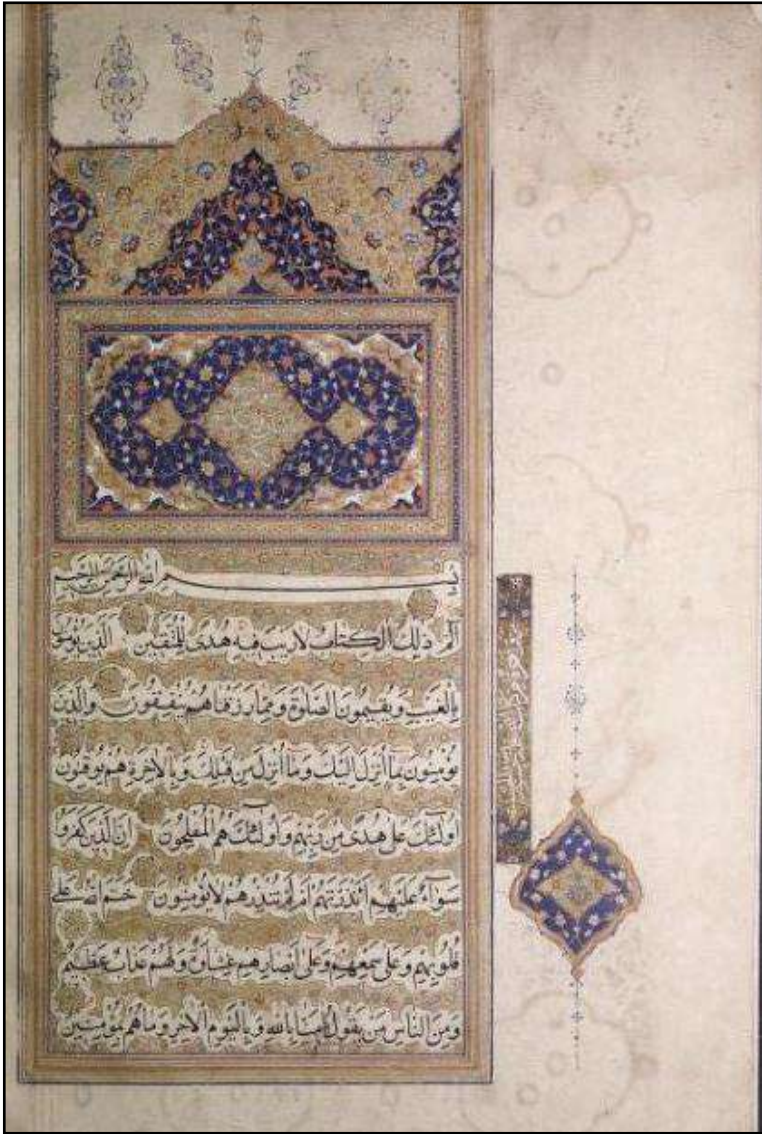 بسم الله الرحمن الرحيم
الم ذلك الكتاب لا ريب فيه هدى للمتقين الذين يؤمنون
بالغيب ويقيمون الصلوة ومما رزقناهم ينفقون والذين
يؤمنون بما أنزل اليك وما أنزل من قبلك وبالآخرة هم يوقنون
اولئك على هدى من ربهم واولئك هم المفلحون ان الذين كفروا
سواء عليهم ءأنذرتهم ام لم تنذرهم لا يؤمنون ختم الله على
قلوبهم وعلى سمعهم وعلى ابصارهم غشاوة ولهم عذاب عظيم
ومن الناس من يقول آمنا بالله وباليوم الآخر وما هم بمؤمنين